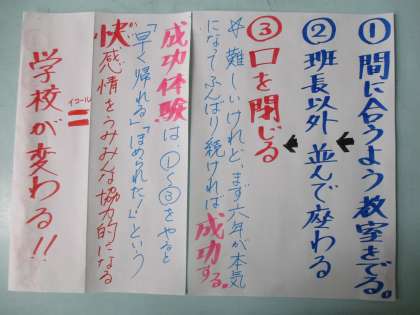 ①間に合うよう教室をでる。
②班長以外 並んで座わる
③口を閉じる
難しいけれど、まず六年が本気
になってふんばり続ければ成功する。
成功体験は、①〜③をやると
「早く帰れる」「ほめられた!」という
快感情をうみみんな協力的になる
イコール
=
学校が変わる!!